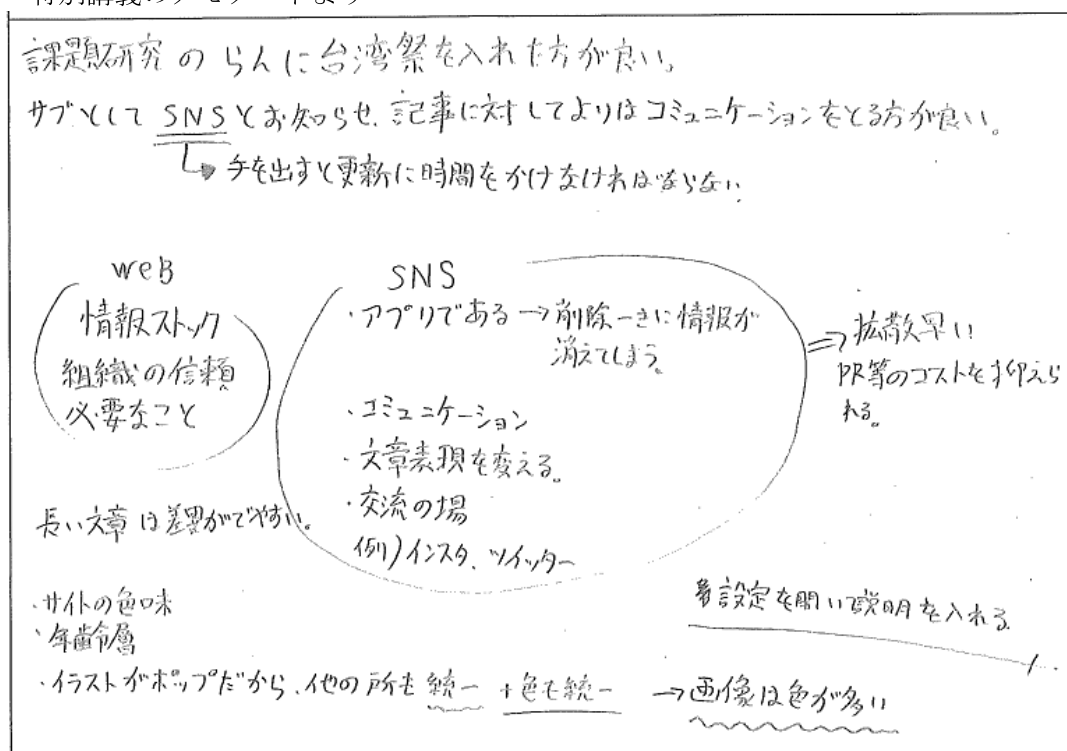 特別講義のワークシートより
課題研究のらんに台湾祭を入れた方が良い。
サブとしてSNSとお知らせ、記事に対してよりはコミュニケーションをとる方が良い。
↳手を出すと更新に時間をかけなければならない
web
情報ストック
組織の信頼
必要なこと
SNS
・アプリである→削除一きに情報が
消えてしまう。
・コミュニケーション
・文章表現を変える。
・交流の場
例)インスタ、ツイッター
⇒拡散早い
PR等のコストを抑えら
れる。
長い文章は差異がでやすい。
・サイトの色味
・年齢層
・イラストがポップだから、他の所も統一 +色も統一 →画像は色が多い
設定を開いて説明を入れる